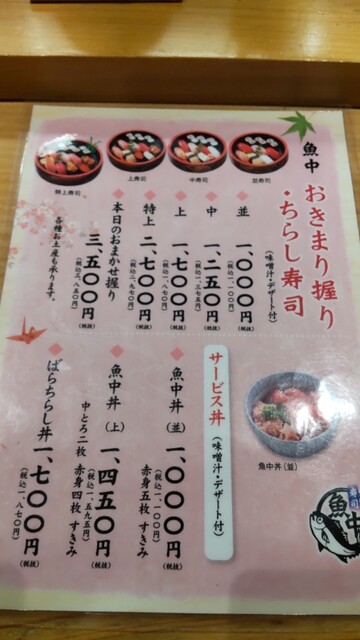 魚中
おきまり握り
・ちらし寿司
(味噌汁・デザート付)
並 一、〇〇〇円(税抜)
(税込一、一〇〇)
中 一、二五〇円(税抜)
(税込一、三七五)
上 一、七〇〇円(税抜)
(税込一、八七〇)
特上 二、七〇〇円(税抜)
(税込二、九七〇)
本日のおまかせ握り
三、五〇〇円(税抜)
(税込三、八五〇)
各種お土産も承ります。
並寿司
中寿司
上寿司
特上寿司
魚中丼(並)
サービス丼(味噌汁・デザート付)
魚中丼(並)
一、〇〇〇円(税抜)
(税込一、一〇〇)
赤身五枚 すきみ
魚中丼(上)
一、四五〇円(税抜)
(税込一、五九五)
中とろ二枚 赤身四枚 すきみ
ばらちらし丼
一、七〇〇円(税抜)
(税込一、八七〇)
魚中